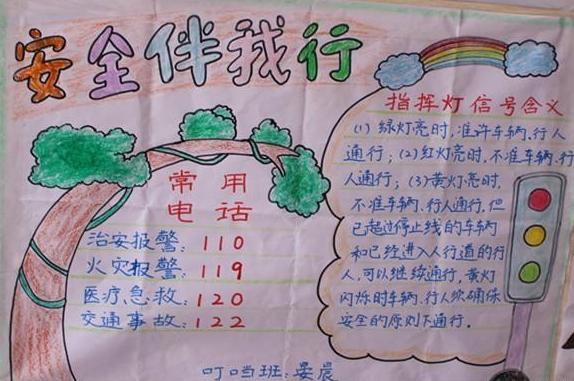 安全伴我行
指挥灯信号含义
(1)绿灯亮时,准许车辆、行人
通行;(2)红灯亮时,不准车辆、行
人通行;(3)黄灯亮时,
不准车辆、行人通行,但
已超过停止线的车辆
和已经进入人行道的行
人,可以继续通行,黄灯
闪烁时车辆、行人须确保
安全的原则下通行.
常用
电话
治安报警:110
火灾报警:119
医疗急救:120
交通事故:122
叮当班:晏晨